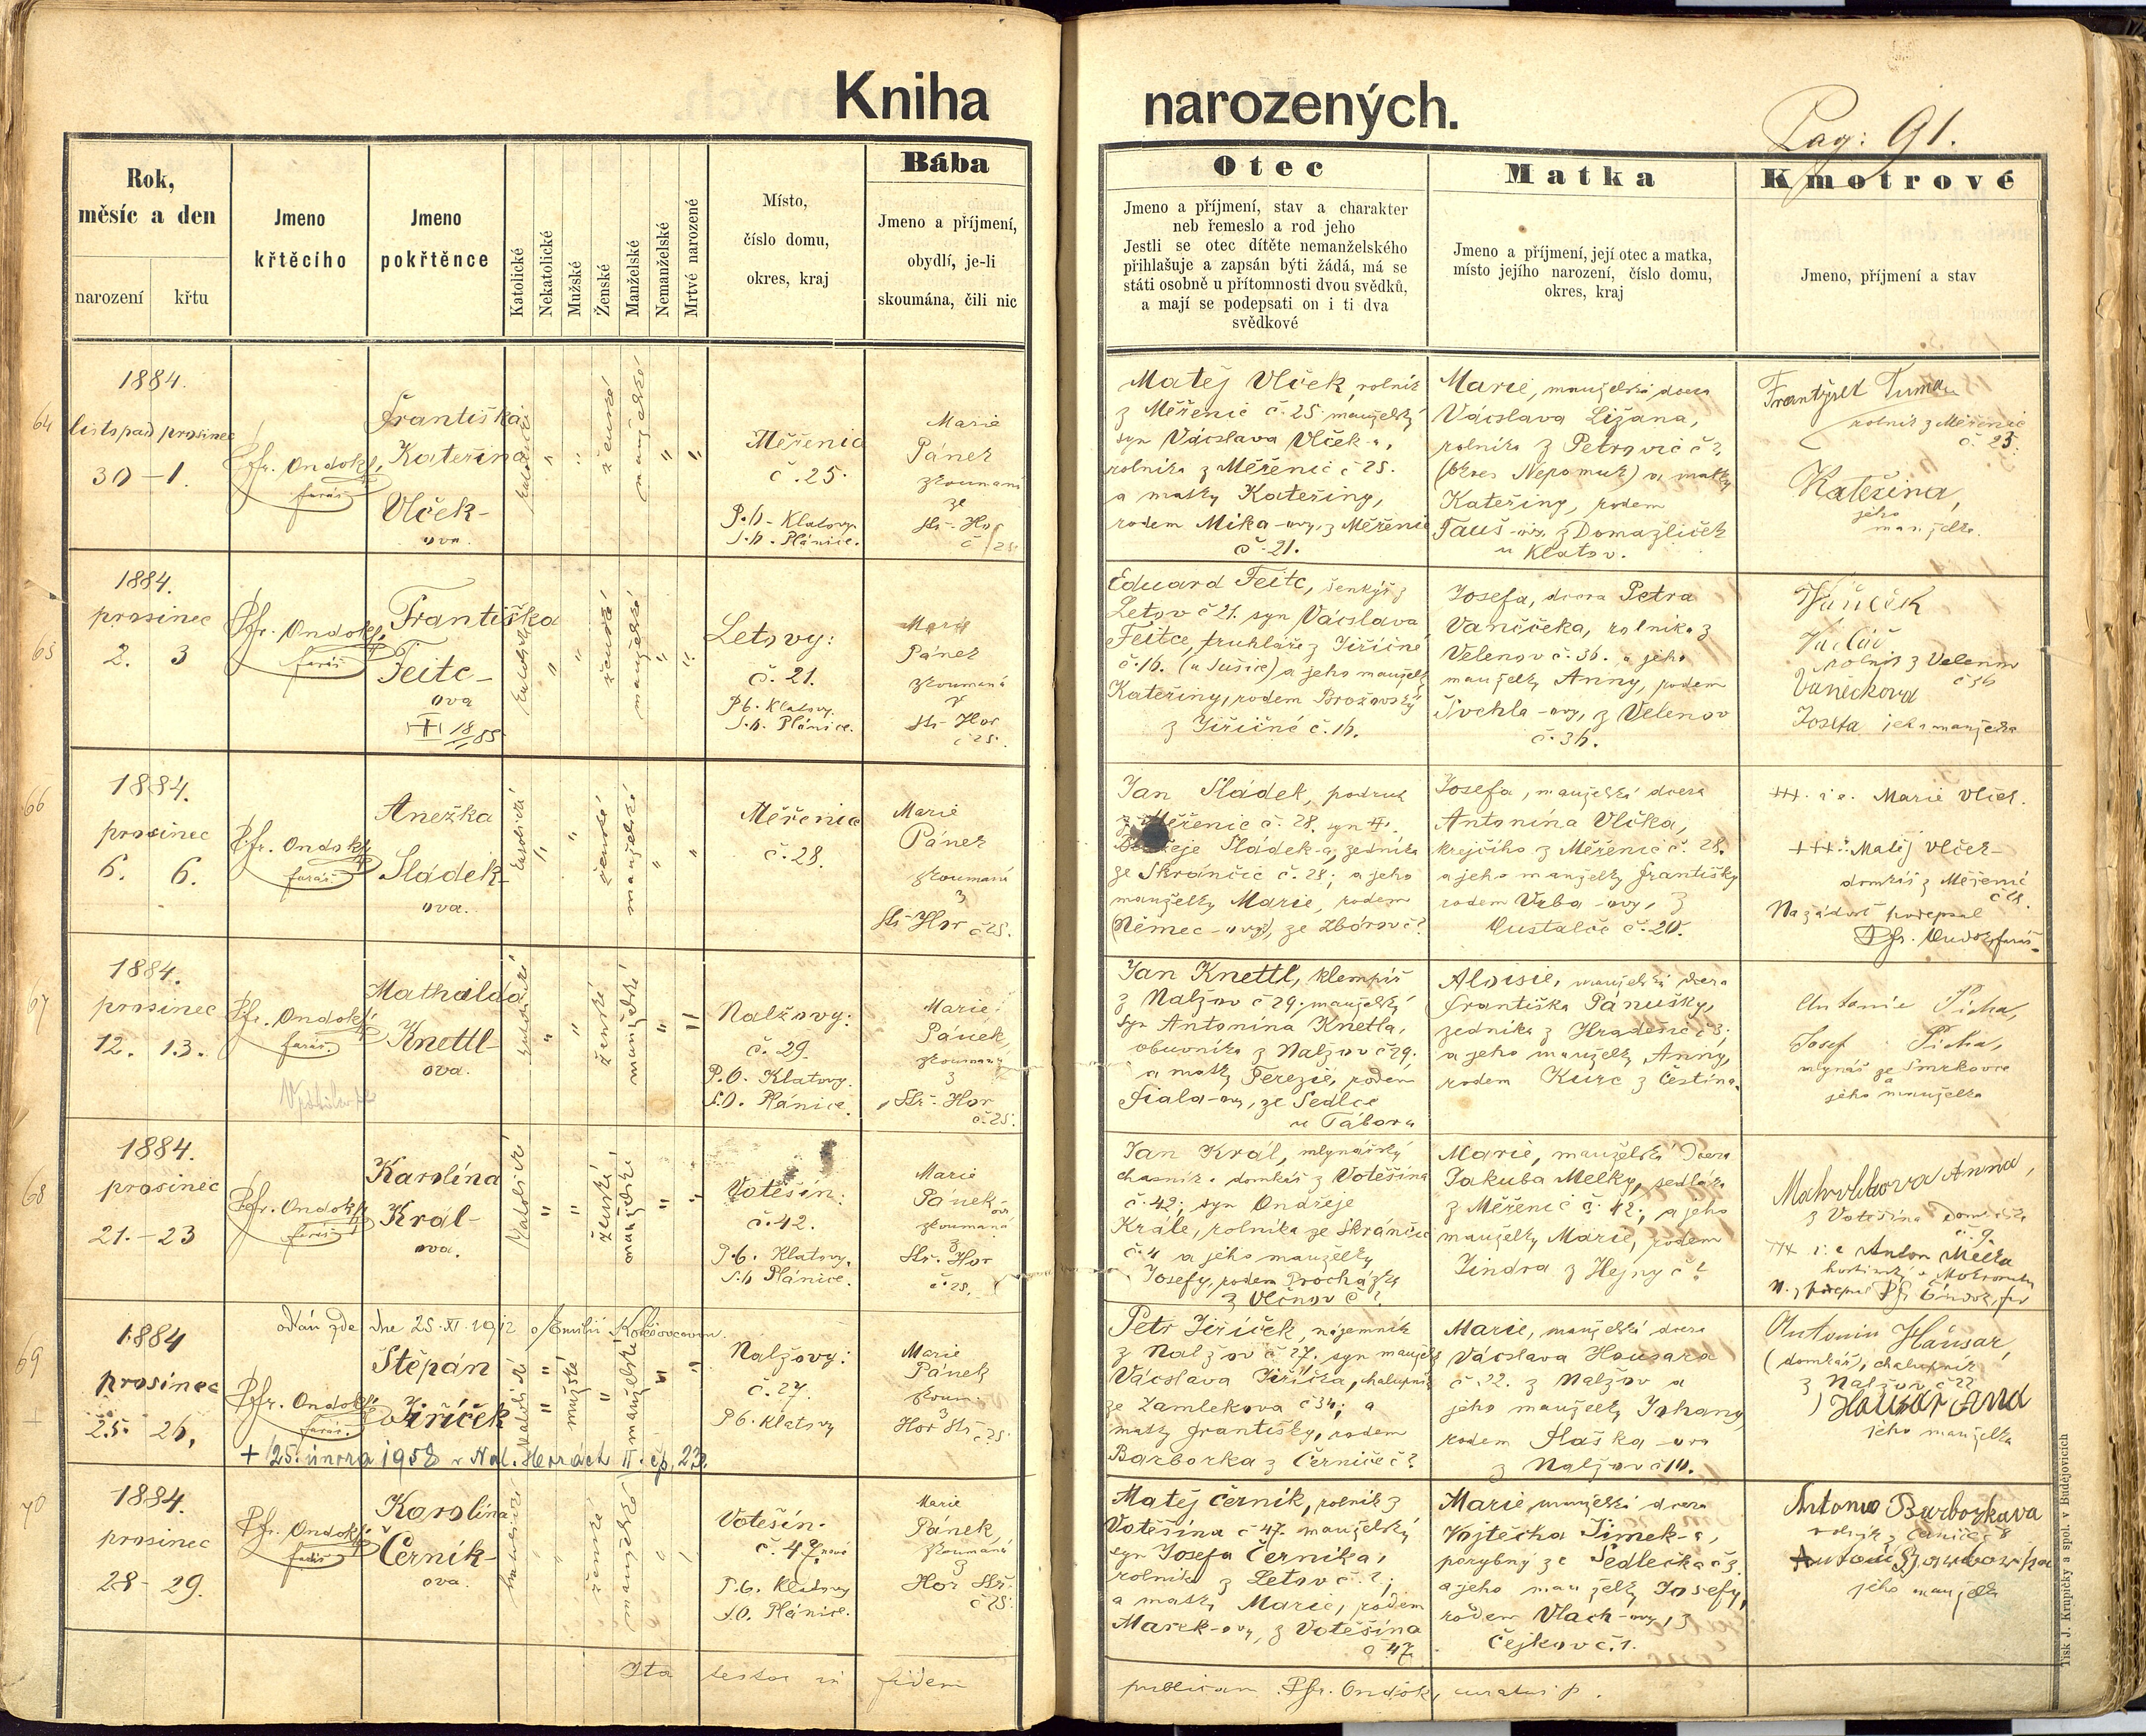 Kniha narozených.
Pag: 91.
Rok,
měsíc a den
narození
křtu
Jmeno
křtěcího
Jmeno
pokřtěnce
Katolické
Nekatolické
Mužské
Ženské
Manželské
Nemanželské
Mrtvé narozené
Místo,
číslo domu,
okres, kraj
Bába
Jmeno a příjmení,
obydlí, je-li
skoumána, čili nic
Otec
Jmeno a příjmení, stav a charakter
neb řemeslo a rod jeho
Jestli se otec dítěte nemanželského
přihlašuje a zapsán býti žádá, má se
státi osobně u přítomnosti dvou svědků,
a mají se podepsati on i ti dva
svědkové
Matka
Jmeno a příjmení, její otec a matka,
místo jejího narození, číslo domu,
okres, kraj
Kmotrové
Jmeno, příjmení a stav
64
1884.
listopad prosinec
30 - 1.
Fr. Ondok,
farář
Františka
Kateřina
Vlček-
ova
katolické
ženské
manželské
Měřenic
č. 25.
P.h. Klatovy
S.h. Plánice.
Marie
Pánek
zkoumaná
ze
Stř. Hor
č. 25.
Matěj Vlček, rolník
z Měřenic č. 25. manželský
syn Vácslava Vlček-a,
rolníka z Měřenic č 25.
a matky Kateřiny,
rodem Mika-ovy, z Měřenic
č. 21.
Marie, manželská dcera
Vácslava Ližana,
rolníka z Petrovic č ?
(okres Nepomuk) a matky
Kateřiny, rodem
Tauš-ovy, z Domažliček
u Klatov.
František Tuma
rolník z Měřenic
č. 23.
Kateřina,
jeho
manželka.
65
1884.
prosinec
2. 3
Fr. Ondok,
farář
Františka
Feitc-
ova
18/85
katolické
ženské
manželské
Letovy:
č. 21.
P.h. Klatovy.
S.h. Plánice.
Marie
Pánek
zkoumaná
z
Stř. Hor
č 25.
Eduard Feitc, šenkýř z
Letov č 21. syn Vácslava
Feitce, truhláře z Jiřičné
č. 16. (u Sušice) a jeho manželky
Kateřiny, rodem Brožovský
z Jiřičné č. 16.
Josefa, dcera Petra
Vančička, rolníka z
Velenov č. 36. a jeho
manželky Anny, rodem
Švehla-ovy, z Velenov
č. 36.
Vaněček
Václav
rolník z Velenov
č 36
Vaněčkova
Josefa jeho manželka
66
1884.
prosinec
6. 6.
Fr. Ondok
farář
Anežka
Sládek-
ova.
katolické
ženské
manželské
Měřenic
č. 28.
Marie
Pánek
zkoumaná
z
Stř. Hor č 25.
Jan Sládek, podruh
z Měřenic č. 28. syn
Sládek-a, zedníka
ze Skránčic č. 28; a jeho
manželky Marie, rodem
(Němec-ovy), ze Zbórov č ?
Josefa, manželská dcera
Antonína Vlčka,
krejčího z Měřenic č. 28.
a jeho manželky Františky
rodem Vrba-ovy, z
Oustaleč č. 20.
+++ Marie Vlček.
+++ Matěj Vlček
domkář z Měřenic
č 28.
Na žádost podepsal
Fr. Ondok, farář.
67
1884.
prosinec
12. 13.
Fr. Ondok,
farář.
Mathilda
Knettl-
ova.
katolické
ženské
manželské
Nalžovy:
č. 29.
P.O. Klatovy.
S.O. Plánice.
Marie
Pánek,
zkoumaná
z
Stř. Hor
č. 25.
Jan Knettl, klempíř
z Nalžov č 29; manželský
syn Antonína Knetla,
obuvníka z Nalžov č 29.
a matky Terezie, rodem
Fiala-ovy, ze Sedlce
u Tábora
Aloisie, manželská dcera
Františka Pánušky,
zedníka z Hradešic č 3;
a jeho manželky Anny,
rodem Kurc z Čestína.
Antonie Picha,
Josef Picha,
mlynář ze Smrkovce
a
jeho manželka
68
1884.
prosinec
21. - 23
Fr. Ondok,
farář
Karolína
Král-
ova.
Katolické
ženské
manželské
Votěšín:
č. 42.
P.h. Klatovy.
S.h. Plánice.
Marie
Pánek-ova
zkoumaná
z
Stř. Hor
č. 25.
Jan Král, mlynářský
chasník a domkář z Votěšína
č. 42; syn Ondřeje
Krále, rolníka ze Skránčic
č. 4 a jeho manželky
Josefy, rodem Procházky
z Vlčnov č ?.
Marie, manželská dcera
Jakuba Melky, sedláka
z Měřenic č. 42; a jeho
manželky Marie, rodem
Jindra z Hejny č ?
Anna,
z Votěšína
č. 9.
+++ Anton Melka
69
oddán zde dne 25. XI. 1912 s Emilií
1884
prosinec
25. 26.
Fr. Ondok,
farář.
Štěpán
Jiříček
katolické
mužské
manželské
Nalžovy:
č. 27.
P.h. Klatovy
Marie
Pánek
zkoum.
z
Hor Stř. č 25
+ 25. února 1958 v Nal. Horách II. čp. 23.
Petr Jiříček, nájemník
z Nalžov č 27. syn manžel.
Vácslava Jiříčka, chalupník
ze Zamlekova č 34; a
matky Františky, rodem
Barborka z Černíče č ?
Marie, manželská dcera
Vácslava Housara
č. 22. z Nalžov a
jeho manželky Johany
rodem Haška-ova
z Nalžov č 10.
Antonin Hausar,
(domkář), chalupník
z Nalžov č 22
Hausar Ana
jeho manželka
70
1884.
prosinec
28 - 29.
Fr. Ondok,
farář
Karolína
Černík-
ova.
katolické
ženské
manželské
Votěšín.
č. 47 nové
P.h. Klatovy
S.O. Plánice.
Marie
Pánek,
zkoumaná
z
Hor Stř.
č 25.
Matěj Černík, rolník z
Votěšína č 47. manželský
syn Josefa Černíka,
rolníka z Letov č. ?;
a matky Marie, rodem
Marek-ovy, z Votěšína
č 47
Marie manželská dcera
Vojtěcha Šimek-a,
porybný ze Sedlečka č 3.
a jeho manželky Josefy,
rodem Vlach-ovy, z
Čejkov č. 1.
Antonio Barborkava
rolník z
Antonie Barborka
jeho manželka
Ita testor in fidem publicam. Fr. Ondok, curatus p.
Tisk J. Krupičky a spol. v Budějovicích